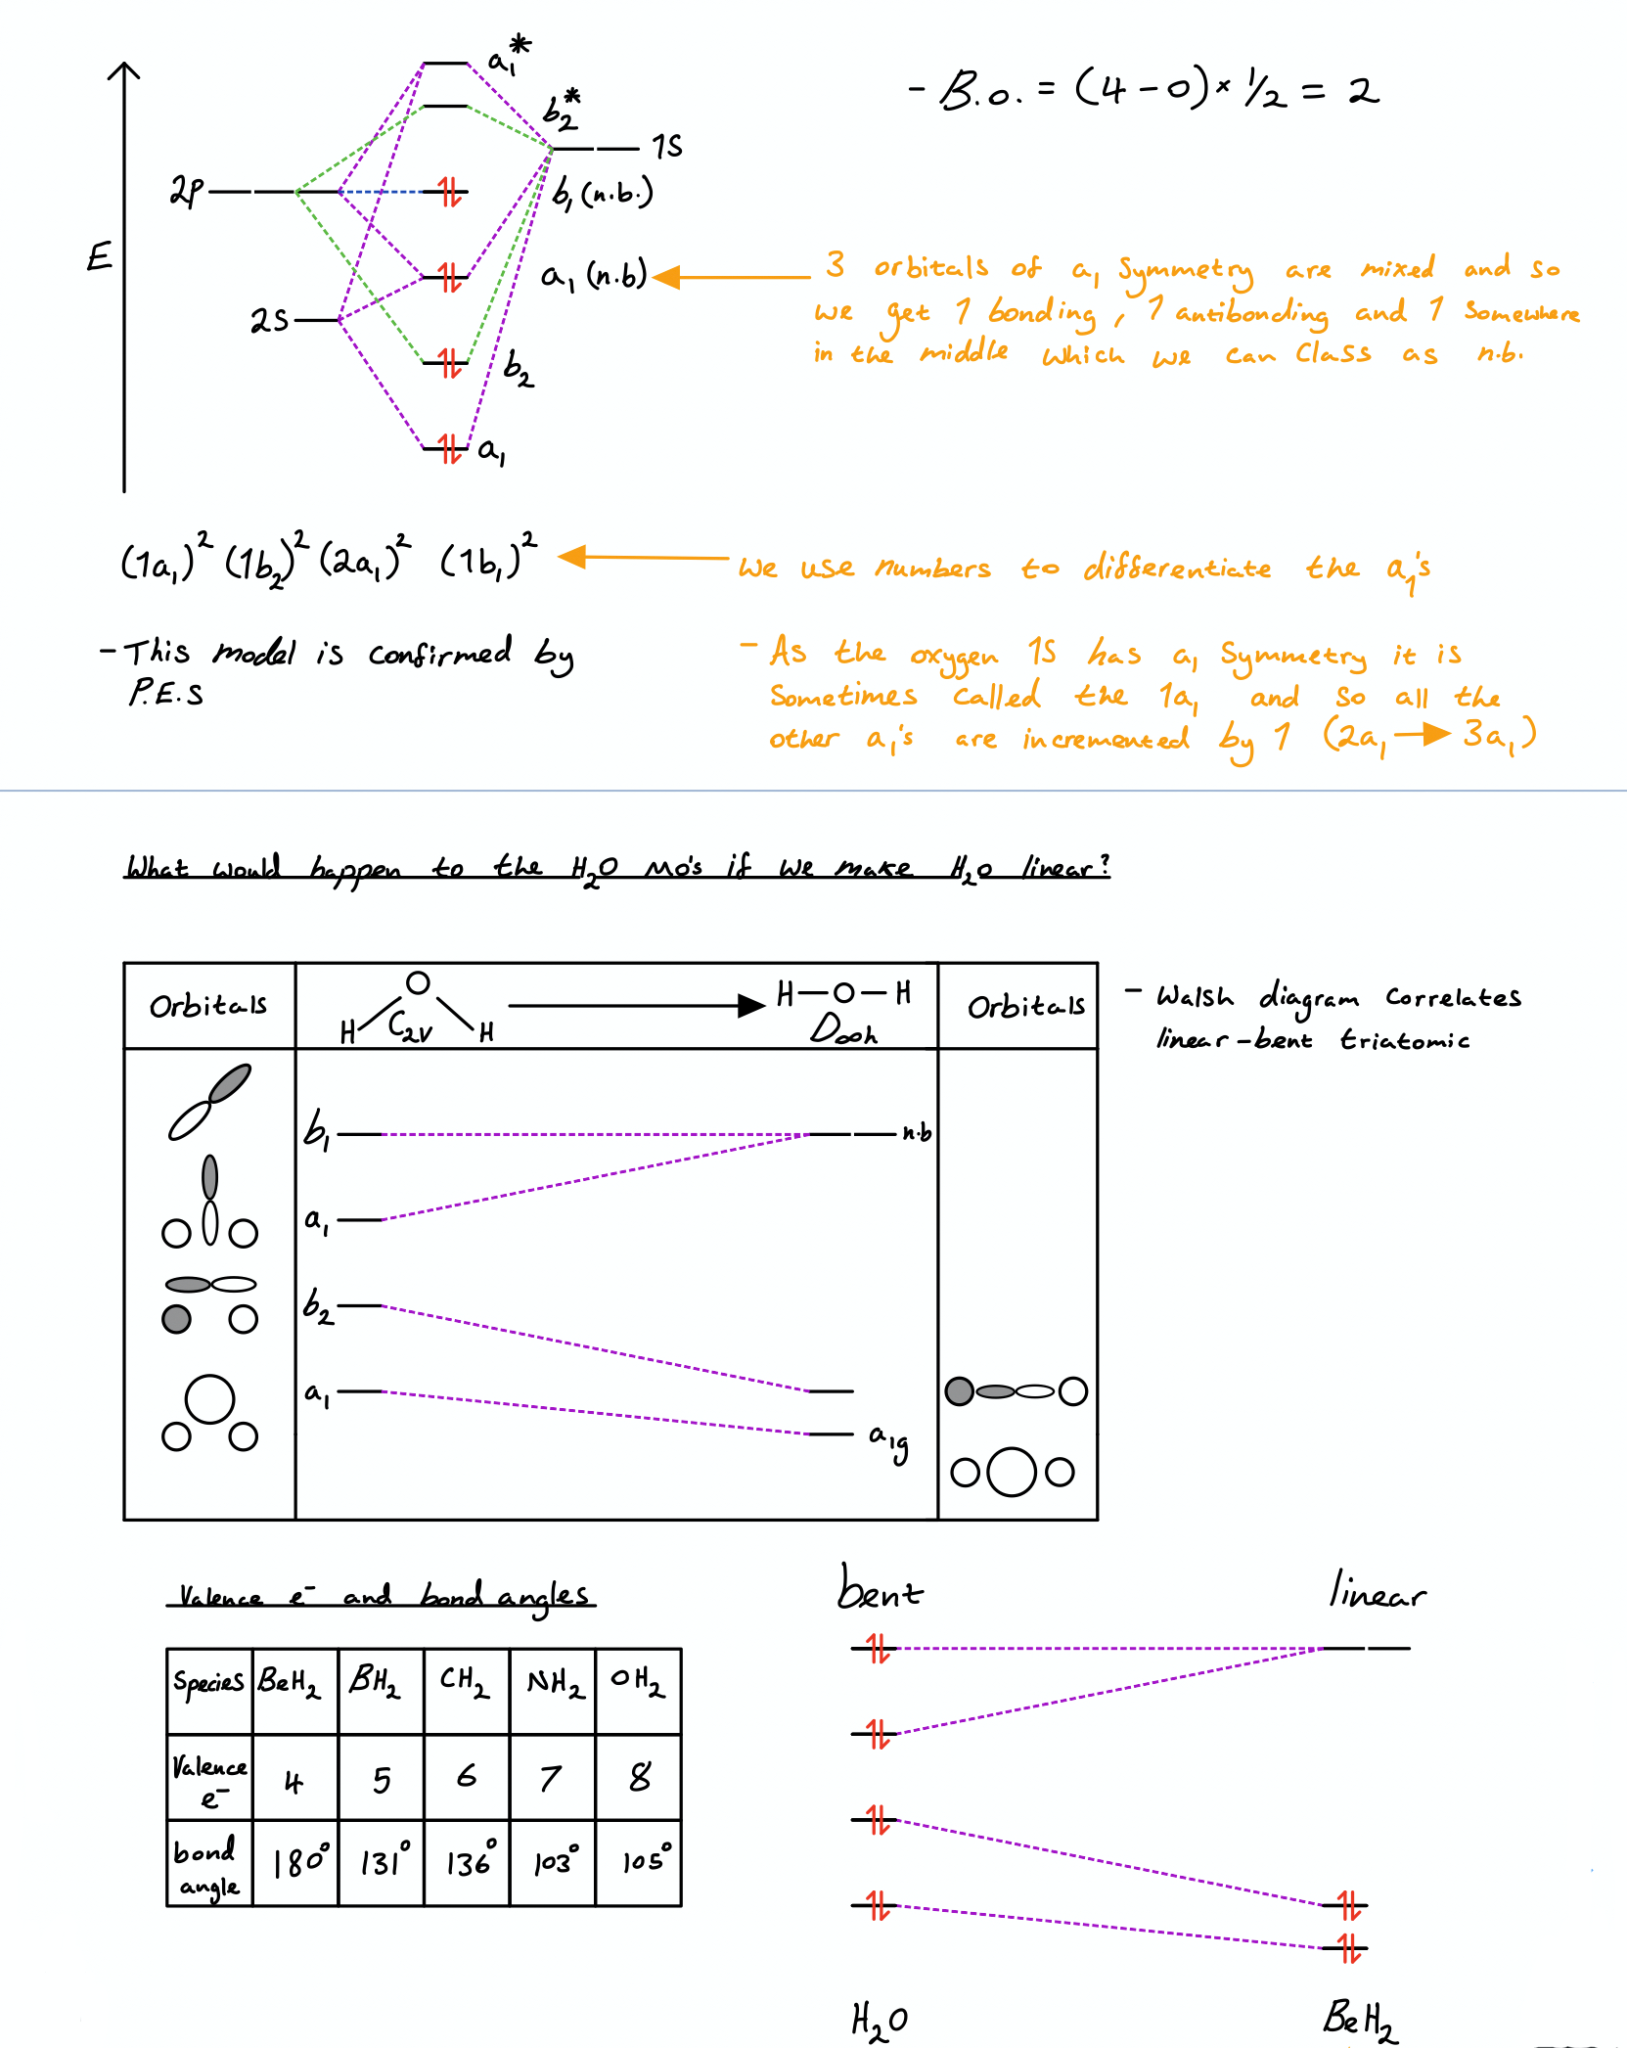 a₁*
- B.O. = (4-0)×1/2 = 2
b₂*
1S
2P
b₁ (n.b.)
E
a₁ (n.b)
3 orbitals of a₁ symmetry are mixed and so
we get 1 bonding, 1 antibonding and 1 somewhere
in the middle which we can class as n.b.
2S
b₂
a₁
(1a₁)² (1b₂)² (2a₁)² (1b₁)²
we use numbers to differentiate the a₁'s
- This model is confirmed by
P.E.S
- As the oxygen 1S has a₁ symmetry it is
sometimes called the 1a₁ and so all the
other a₁'s are incremented by 1 (2a₁ → 3a₁)
What would happen to the H₂O MO's if we make H₂O linear?
Orbitals
H O H
C₂v
H-O-H
D∞h
Orbitals
- Walsh diagram correlates
linear-bent triatomic
b₁
n.b
a₁
b₂
a₁
a₁g
Valence e⁻ and bond angles
Species BeH₂ BH₂ CH₂ NH₂ OH₂
Valence e⁻ 4 5 6 7 8
bond angle 180° 131° 136° 103° 105°
bent
linear
H₂O
BeH₂